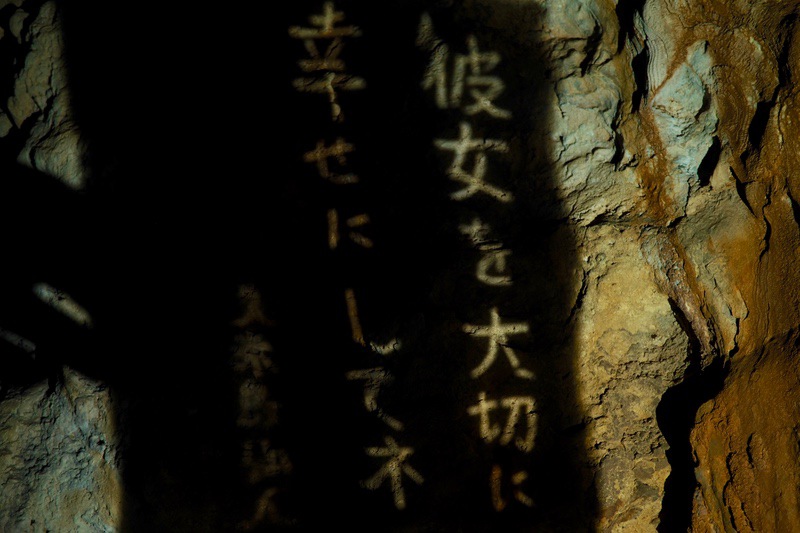 彼女を大切に
幸せにしてネ